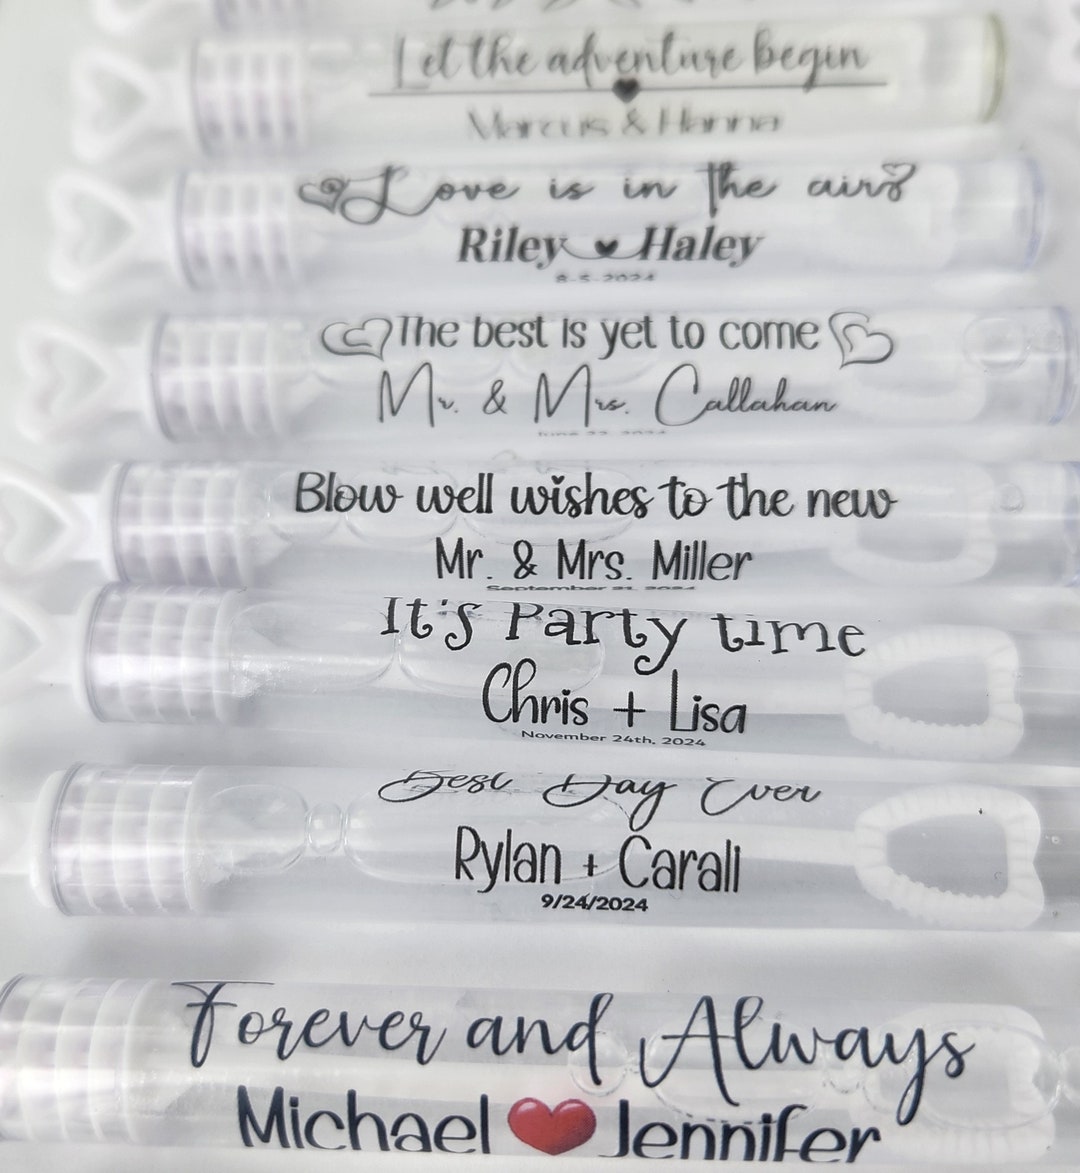 Let the adventure begin
Marcus & Hanna
Love is in the air
Riley Haley
8-5-2024
The best is yet to come
Mr. & Mrs. Callahan
June 22, 2024
Blow well wishes to the new
Mr. & Mrs. Miller
September 21, 2024
It's Party time
Chris + Lisa
November 24th, 2024
Best Day Ever
Rylan + Carali
9/24/2024
Forever and Always
Michael Jennifer